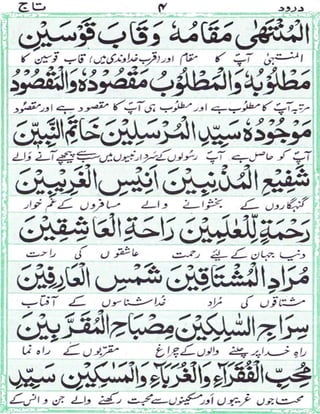 درود ۴ تاج
الْمُنْتَهٰى مَقَامُهٗ وَقَابَ قَوْسَيْنِ
المنتہیٰ آپ کا مقام اور (قرب خداوندی میں) قاب قوسین کا
مَطْلُوْبُهٗ وَالْمَطْلُوْبُ مَقْصُوْدُهٗ وَالْمَقْصُوْدُ
مرتبہ آپ کا مطلوب ہے اور مطلوب ہی آپ کا مقصود ہے اور مقصود
مَوْجُوْدُهٗ سَيِّدِ الْمُرْسَلِيْنَ خَاتَمِ النَّبِيِّيْنَ
آپ کو حاصل ہے آپ رسولوں کے سردار نبیوں میں سب سے پیچھے آنے والے
شَفِيْعِ الْمُذْنِبِيْنَ اَنِيْسِ الْغَرِيْبِيْنَ
گنہگاروں کے بخشوانے والے مسافروں کے غم خوار
رَحْمَةٍ لِّلْعٰلَمِيْنَ رَاحَةِ الْعَاشِقِيْنَ
دنیا جہان کے لئے رحمت عاشقوں کی راحت
مُرَادِ الْمُشْتَاقِيْنَ شَمْسِ الْعَارِفِيْنَ
مشتاقوں کی مُراد خدا شناسوں کے آفتاب
سِرَاجِ السّٰلِكِيْنَ مِصْبَاحِ الْمُقَرَّبِيْنَ
راہِ خدا پر چلنے والوں کے چراغ مقربوں کے راہ نما
مُحِبِّ الْفُقَرَآءِ وَالْغُرَبَآءِ وَالْمَسٰكِيْنِ سَيِّدِ
محتاجوں غریبوں اور مسکینوں سے محبت رکھنے والے جن و انس کے